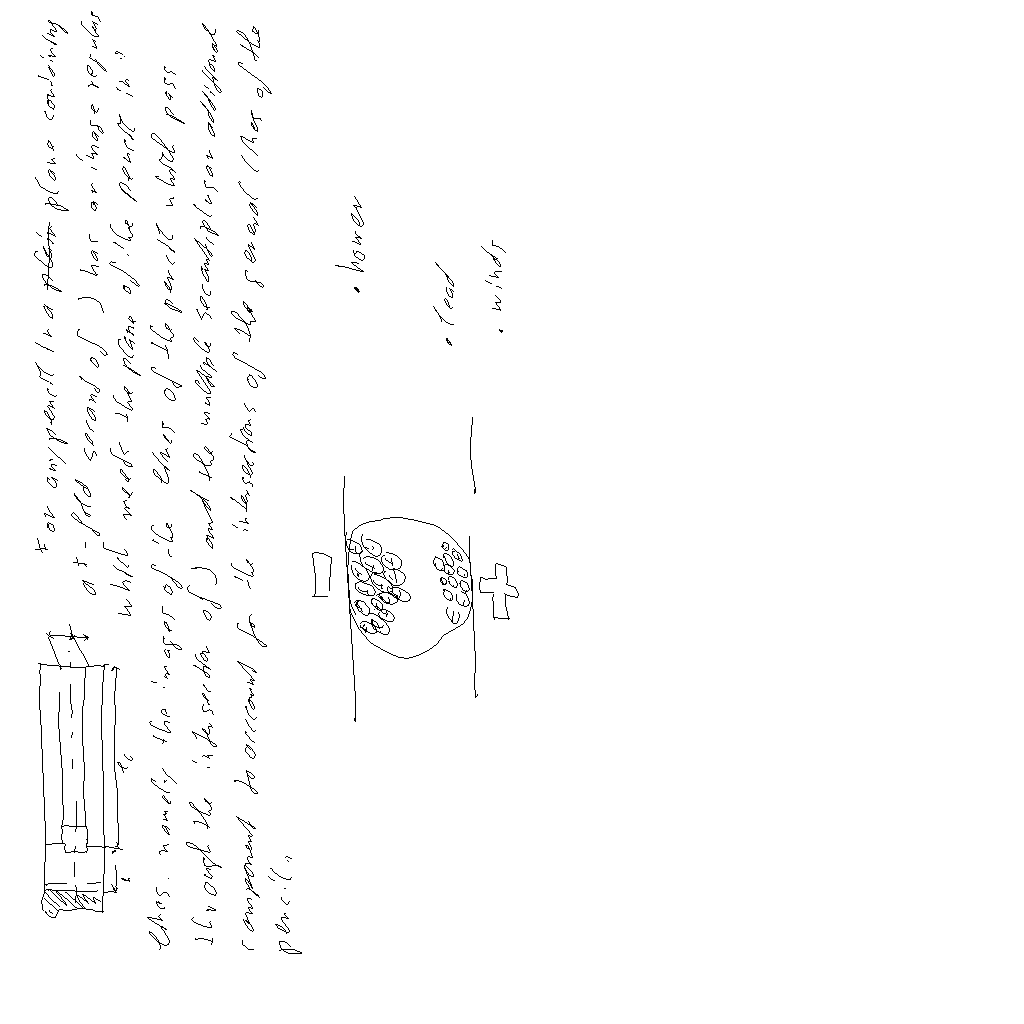 For any pencil in a plane containing
a x-fold secand of ) has an image regulus
which meets the plane of the pencil in
lines. namely the images of the lines of the pencil which pass
through the intersection of ) and the multiple secandsplus an additional
component to account for the intersections of the general lines of the
pencil,
• homer
• lead
• winds
lc